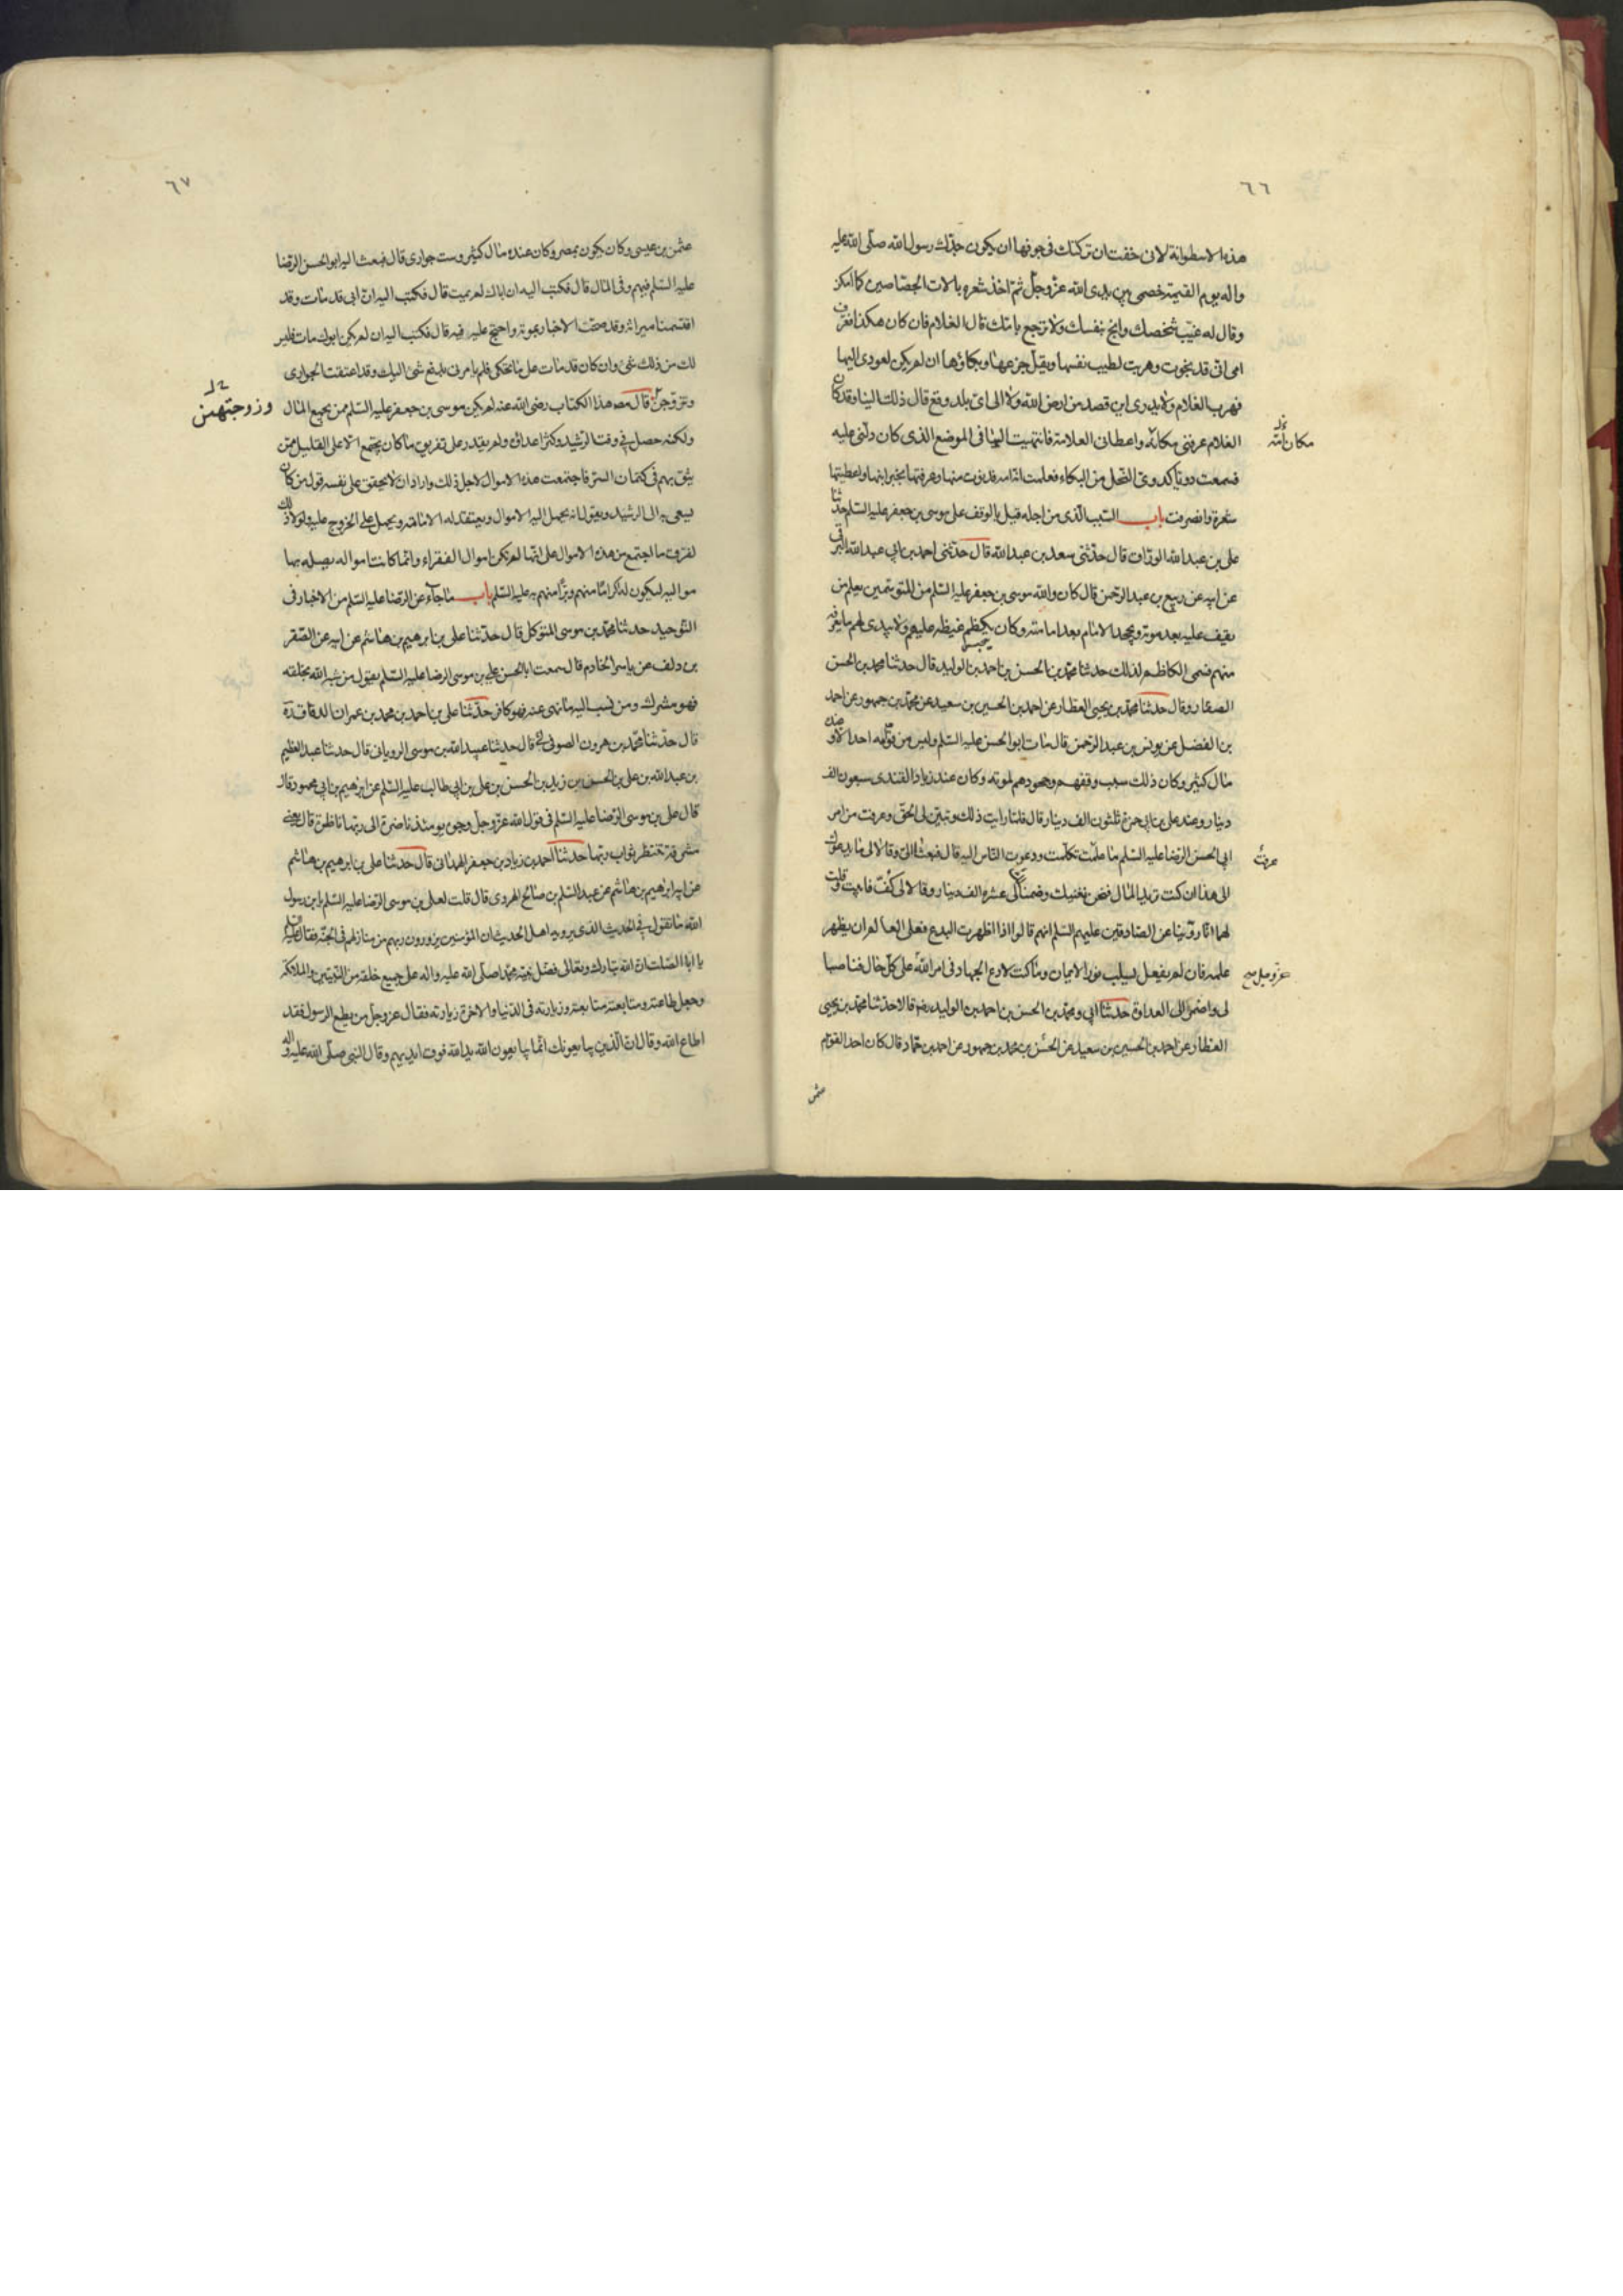 ٦٦
هذه الاسطوانة لانى خفت ان تركتك فى جوفها ان يكون جدّك رسول الله صلّى الله عليه
واله يوم القيمة خصمى بين يدى الله عزّ وجلّ ثمّ اخذ شعره بالات الجصّاصين كما امكن
وقال له غيّب شخصك وانج بنفسك ولا ترجع الى امّك قال الغلام فان كان هكذا فعرّف
امى انّى قد نجوت وهربت لتطيب نفسها ويقلّ جزعها وبكاؤها ان لم يكن لعودى اليها
فهرب الغلام ولا يدرى اين قصد من ارض الله ولا الى اىّ بلد وقع قال ذلك البنا وقد كان
الغلام عرفنى مكانه واعطانى العلامة فانتهيت اليها فى الموضع الذى كان دلّنى عليه
مكان امّه
فسمعت دويّا كدوىّ النحل من البكاء فعلمت انّها امه فدنوت منها وعرفتها بخبر ابنها واعطيتها
شعره وانصرفت باب السّبب الّذى من اجله قيل بالوقف على موسى بن جعفر عليه السّلم حدّثنا
على بن عبد الله الورّاق قال حدّثنى سعد بن عبد الله قال حدّثنى احمد بن ابى عبد الله البرقى
عن ابيه عن ربيع بن عبد الرّحمن قال كان والله موسى بن جعفر عليه السّلم من المتوسّمين يعلم من
يقف عليه بعد موته ويجحد الامام بعد امامته وكان يكظم غيظه عليهم ولا يبدى لهم ما يعرفه
منهم فسمى الكاظم لذلك حدثنا محمّد بن الحسن بن احمد بن الوليد قال حدثنا محمد بن الحسن
الصفار وقال حدثنا محمّد بن يحيى العطار عن احمد بن الحسين بن سعيد عن محمّد بن جمهور عن احمد
بن الفضل عن يونس بن عبد الرّحمن قال مات ابو الحسن عليه السّلم وليس من قوّامه احد الا وعنده
مال كثير وكان ذلك سبب وقفهم وجحودهم لموته وكان عند زياد القندى سبعون الف
دينار وعند على بن ابى حمزة ثلثون الف دينار قال فلمّا رايت ذلك وتبيّن لى الحقّ وعرفت من امر
ابى الحسن الرّضا عليه السّلم ما علمت تكلّمت ودعوت النّاس اليه قال فبعثا الىّ وقالا لى ما يدعوك
الى هذا ان كنت تريد المال فنحن نغنيك وضمنا لى عشرة الاف دينار وقالا لى كفّ فابيت وقلت
لهما انّا روّينا عن الصّادقين عليهم السّلم انهم قالوا اذا ظهرت البدع فعلى العالم ان يظهر
علمه فان لم يفعل سلب نور الايمان وما كنت لادع الجهاد فى امر الله على كلّ حال فناصبا
عزّ وجلّ صح
لى واضمرا لى العداوة حدثنا ابى ومحمّد بن الحسن بن احمد بن الوليد رضه قالا حدثنا محمّد بن يحيى
العطار عن احمد بن الحسين بن سعيد عن الحسن بن محمد بن جمهور عن احمد بن حمّاد قال كان احد القوّام
عثمن
٦٧
عثمن بن عيسى وكان يكون بمصر وكان عنده مال كثير وست جوارى قال فبعث اليه ابو الحسن الرّضا
عليه السّلم فيهم وفى المال قال فكتب اليه ان اباك لم يمت قال فكتب اليه انّ ابى قد مات وقد
اقتسمنا ميراثه وقد صحّت الاخبار بموته واحتجّ عليه فيه قال فكتب اليه ان لم يكن ابوك مات فليس
لك من ذلك شئ وان كان قد مات على ما تحكى فلم يامرنى بدفع شئ اليك وقد اعتقت الجوارى
وتزوّجتهنّ قال مصه هذا الكتاب رضى الله عنه لم يكن موسى بن جعفر عليه السّلم ممن يجمع المال
وزوجتهن
ولكنه حصل فى وقت الرّشيد وكثر اعداؤه ولم يقدر على تفريق ما كان يجتمع الا على القليل ممّن
يثق بهم فى كتمان السّرّ فاجتمعت هذه الاموال لاجل ذلك واراد ان لا يحقق على نفسه قول من كان
يسعى به الى الرشيد ويقول انه يحمل اليه الاموال ويعتقد له الامامة ويحمل على الخروج عليه ولولا ذلك
لفرّق ما اجتمع من هذه الاموال على انّها لم تكن اموال الفقراء وانّما كانت امواله يصله بها
مواليه ليكون له اكراما منهم وبرّا منهم به عليه السّلم باب ما جآء عن الرّضا عليه السّلم من الاخبار فى
التّوحيد حدثنا محمّد بن موسى المتوكل قال حدّثنا على بن ابرهيم بن هاشم عن ابيه عن الصّقر
بن دلف عن ياسر الخادم قال سمعت ابا الحسن على بن موسى الرضا عليه السّلم يقول من شبه الله بخلقه
فهو مشرك ومن نسب اليه ما نهى عنه فهو كافر حدّثنا على بن احمد بن محمد بن عمران الدقاق رة
قال حدّثنا محمّد بن هرون الصوفى قال حدثنا عبيد الله بن موسى الرويانى قال حدثنا عبد العظيم
بن عبد الله بن على بن الحسن بن زيد بن الحسن بن على بن ابى طالب عليه السّلم عن ابرهيم بن ابى محمود قال
قال على بن موسى الرّضا عليه السّلم فى قول الله عزّ وجلّ وجوه يومئذ ناضرة الى ربّها ناظرة قال يعنى
مشرقة تنتظر ثواب ربّها حدثنا احمد بن زياد بن جعفر الهمدانى قال حدثنا على بن ابرهيم بن هاشم
عن ابيه ابرهيم بن هاشم عن عبد السّلم بن صالح الهروى قال قلت لعلى بن موسى الرّضا عليه السّلم يا بن رسول
الله ما تقول فى الحديث الذى يرويه اهل الحديث ان المؤمنين يزورون ربهم من منازلهم فى الجنّة فقال عليه السّلم
يا ابا الصّلت انّ الله تبارك وتعالى فضّل نبيّه محمّدا صلّى الله عليه واله على جميع خلقه من النّبيّين والملائكة
وجعل طاعته طاعته ومتابعته متابعته وزيارته فى الدّنيا والاخرة زيارته فقال عزّ وجلّ من يطع الرسول فقد
اطاع الله وقال انّ الّذين يبايعونك انّما يبايعون الله يد الله فوق ايديهم وقال النبى صلّى الله عليه واله